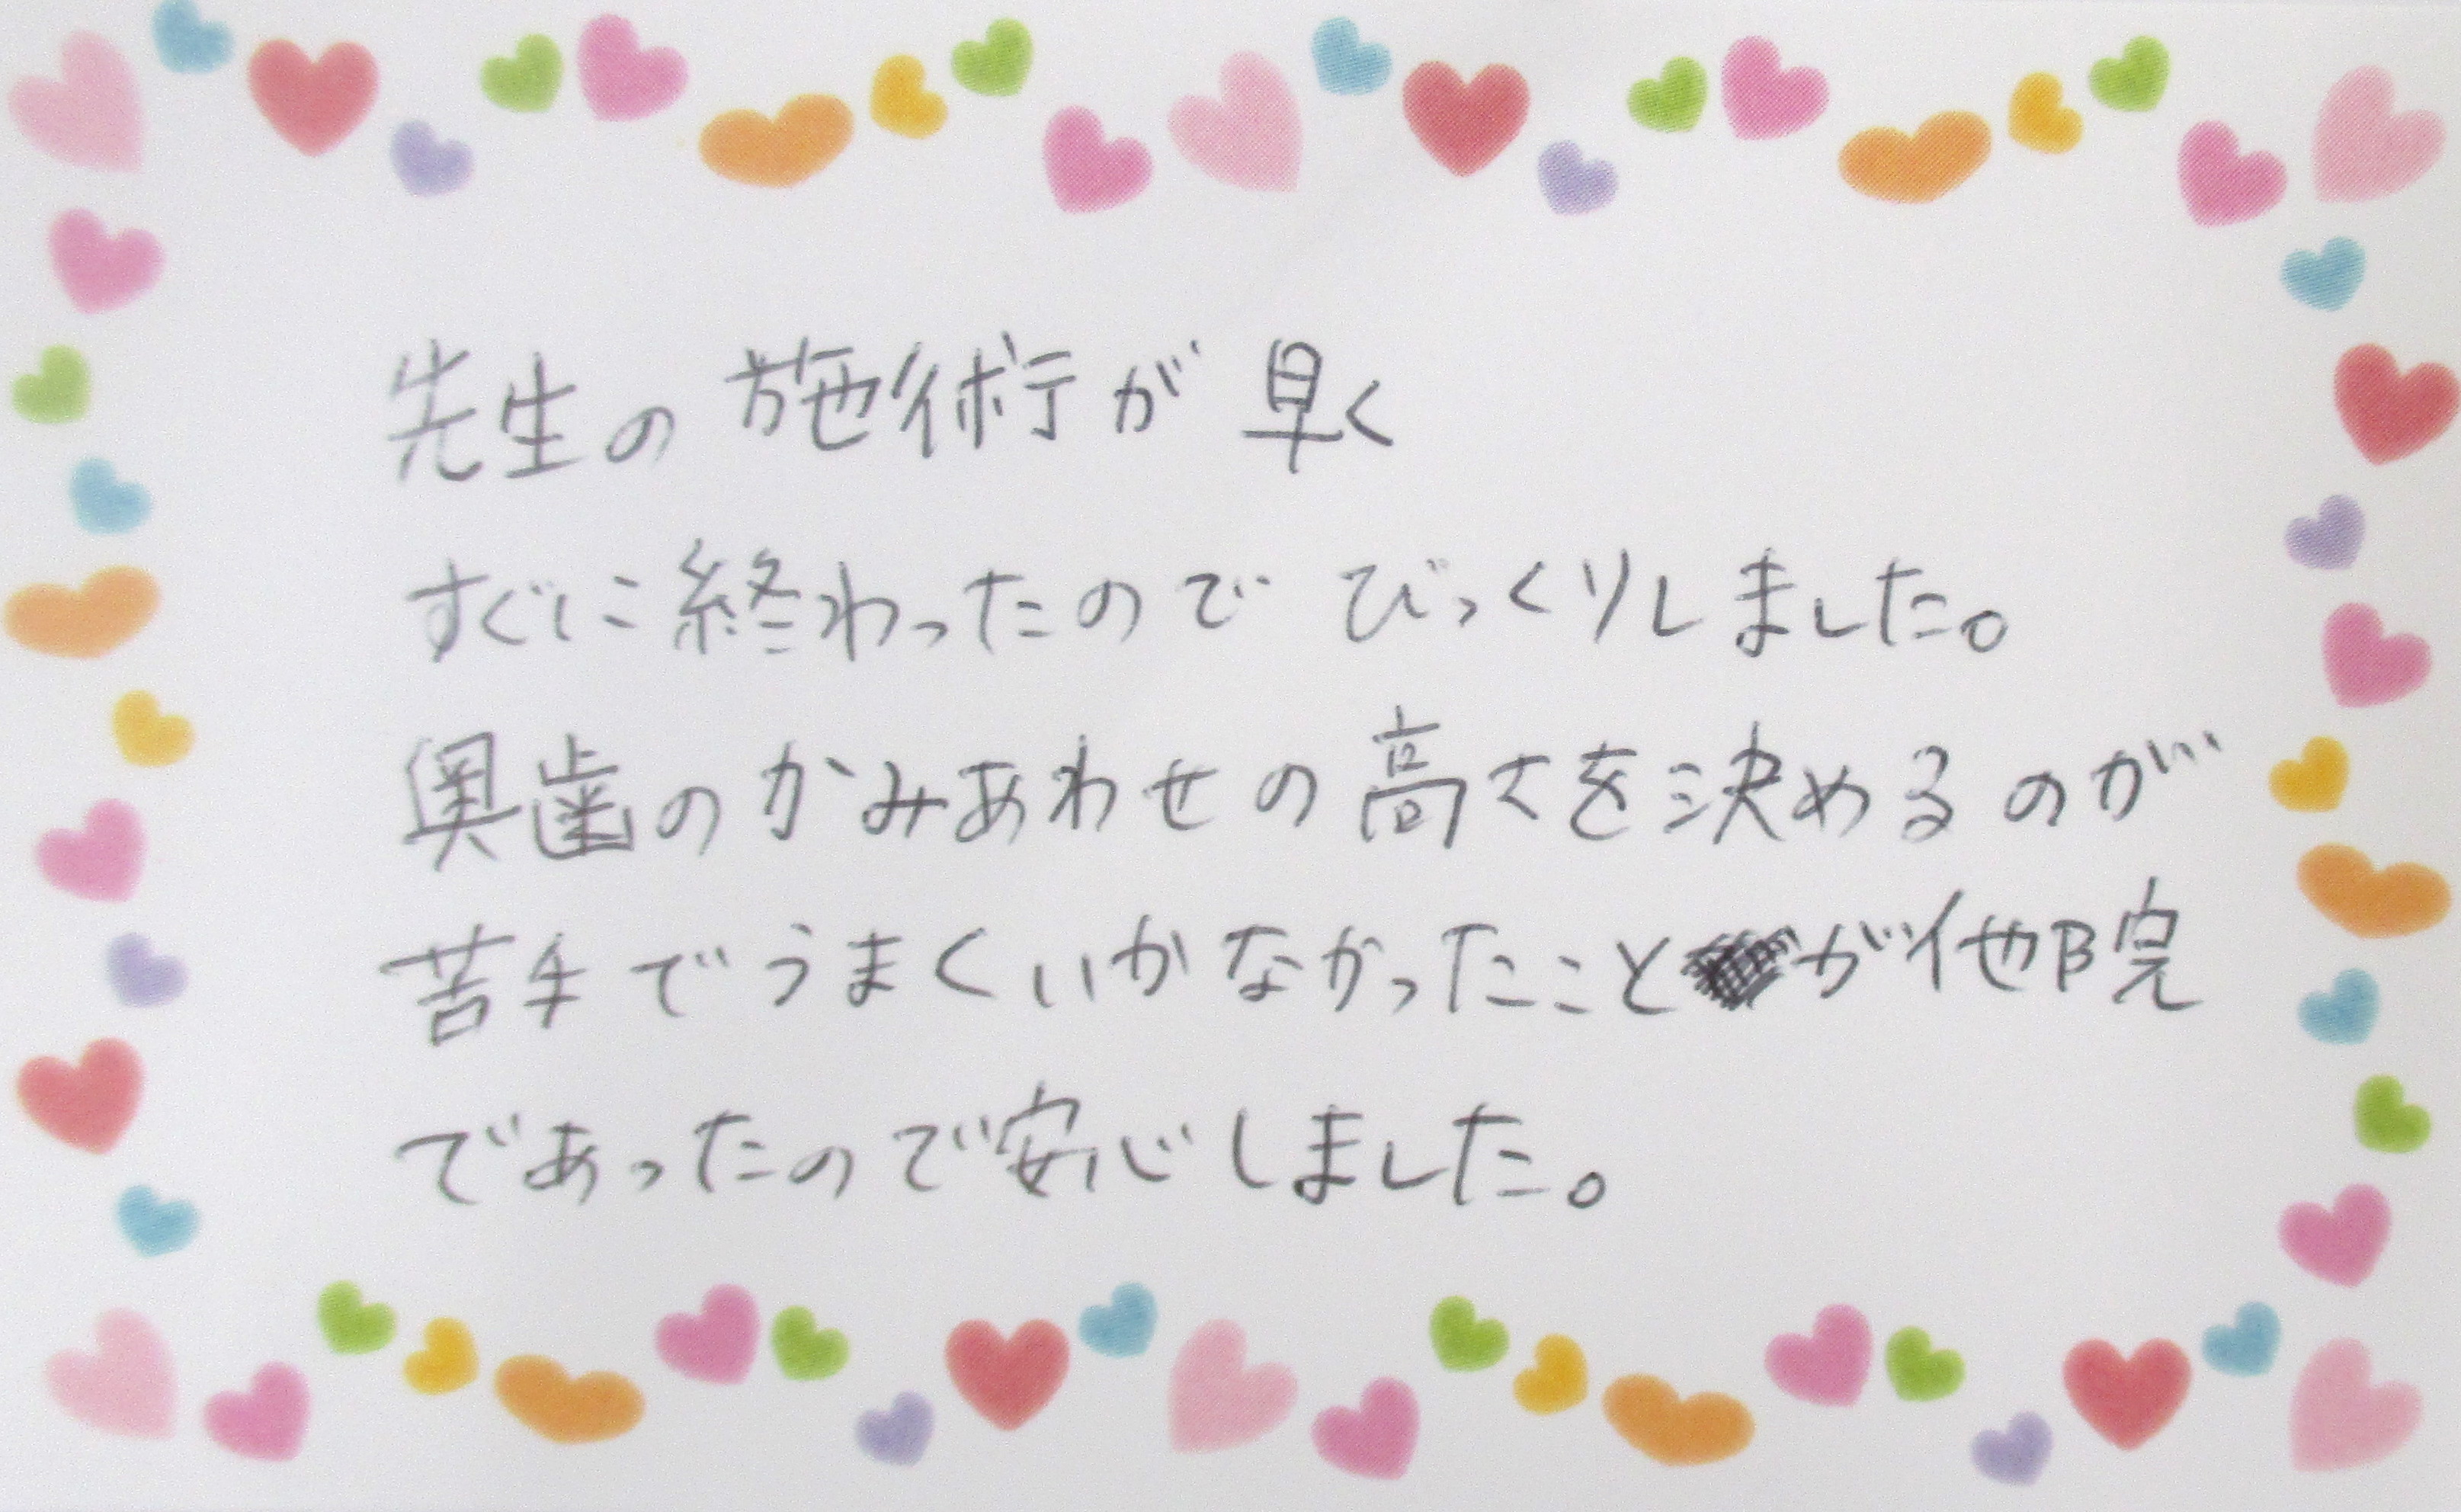 先生の施術が早く
すぐに終わったのでびっくりしました。
奥歯のかみあわせの高さを決めるのが
苦手でうまくいかなかったことが他院
であったので安心しました。